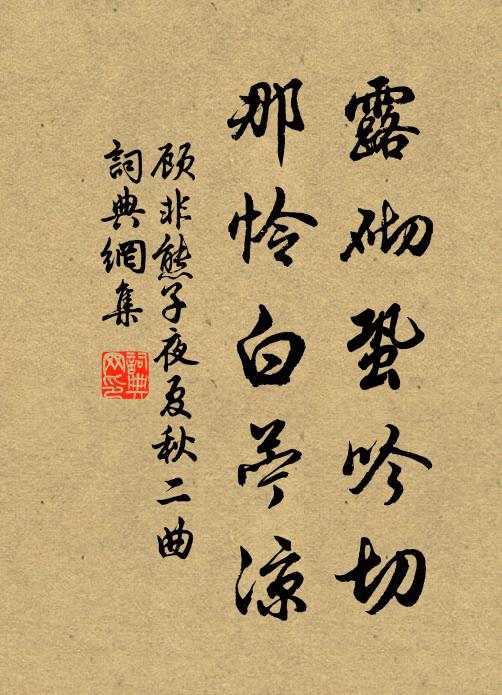 露砌蛩吟切
那怜白苎涼
顾非熊子夜夏秋二曲
詞典網集
詞典
网印